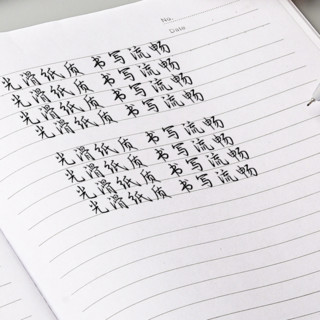 No.
Date
光滑纸质 书写流畅
光滑纸质 书写流畅
光滑纸质 书写流畅
光滑纸质 书写流畅
光滑纸质 书写流畅
光滑纸质 书写流畅
光滑纸质 书写流畅
光滑纸质 书写流畅